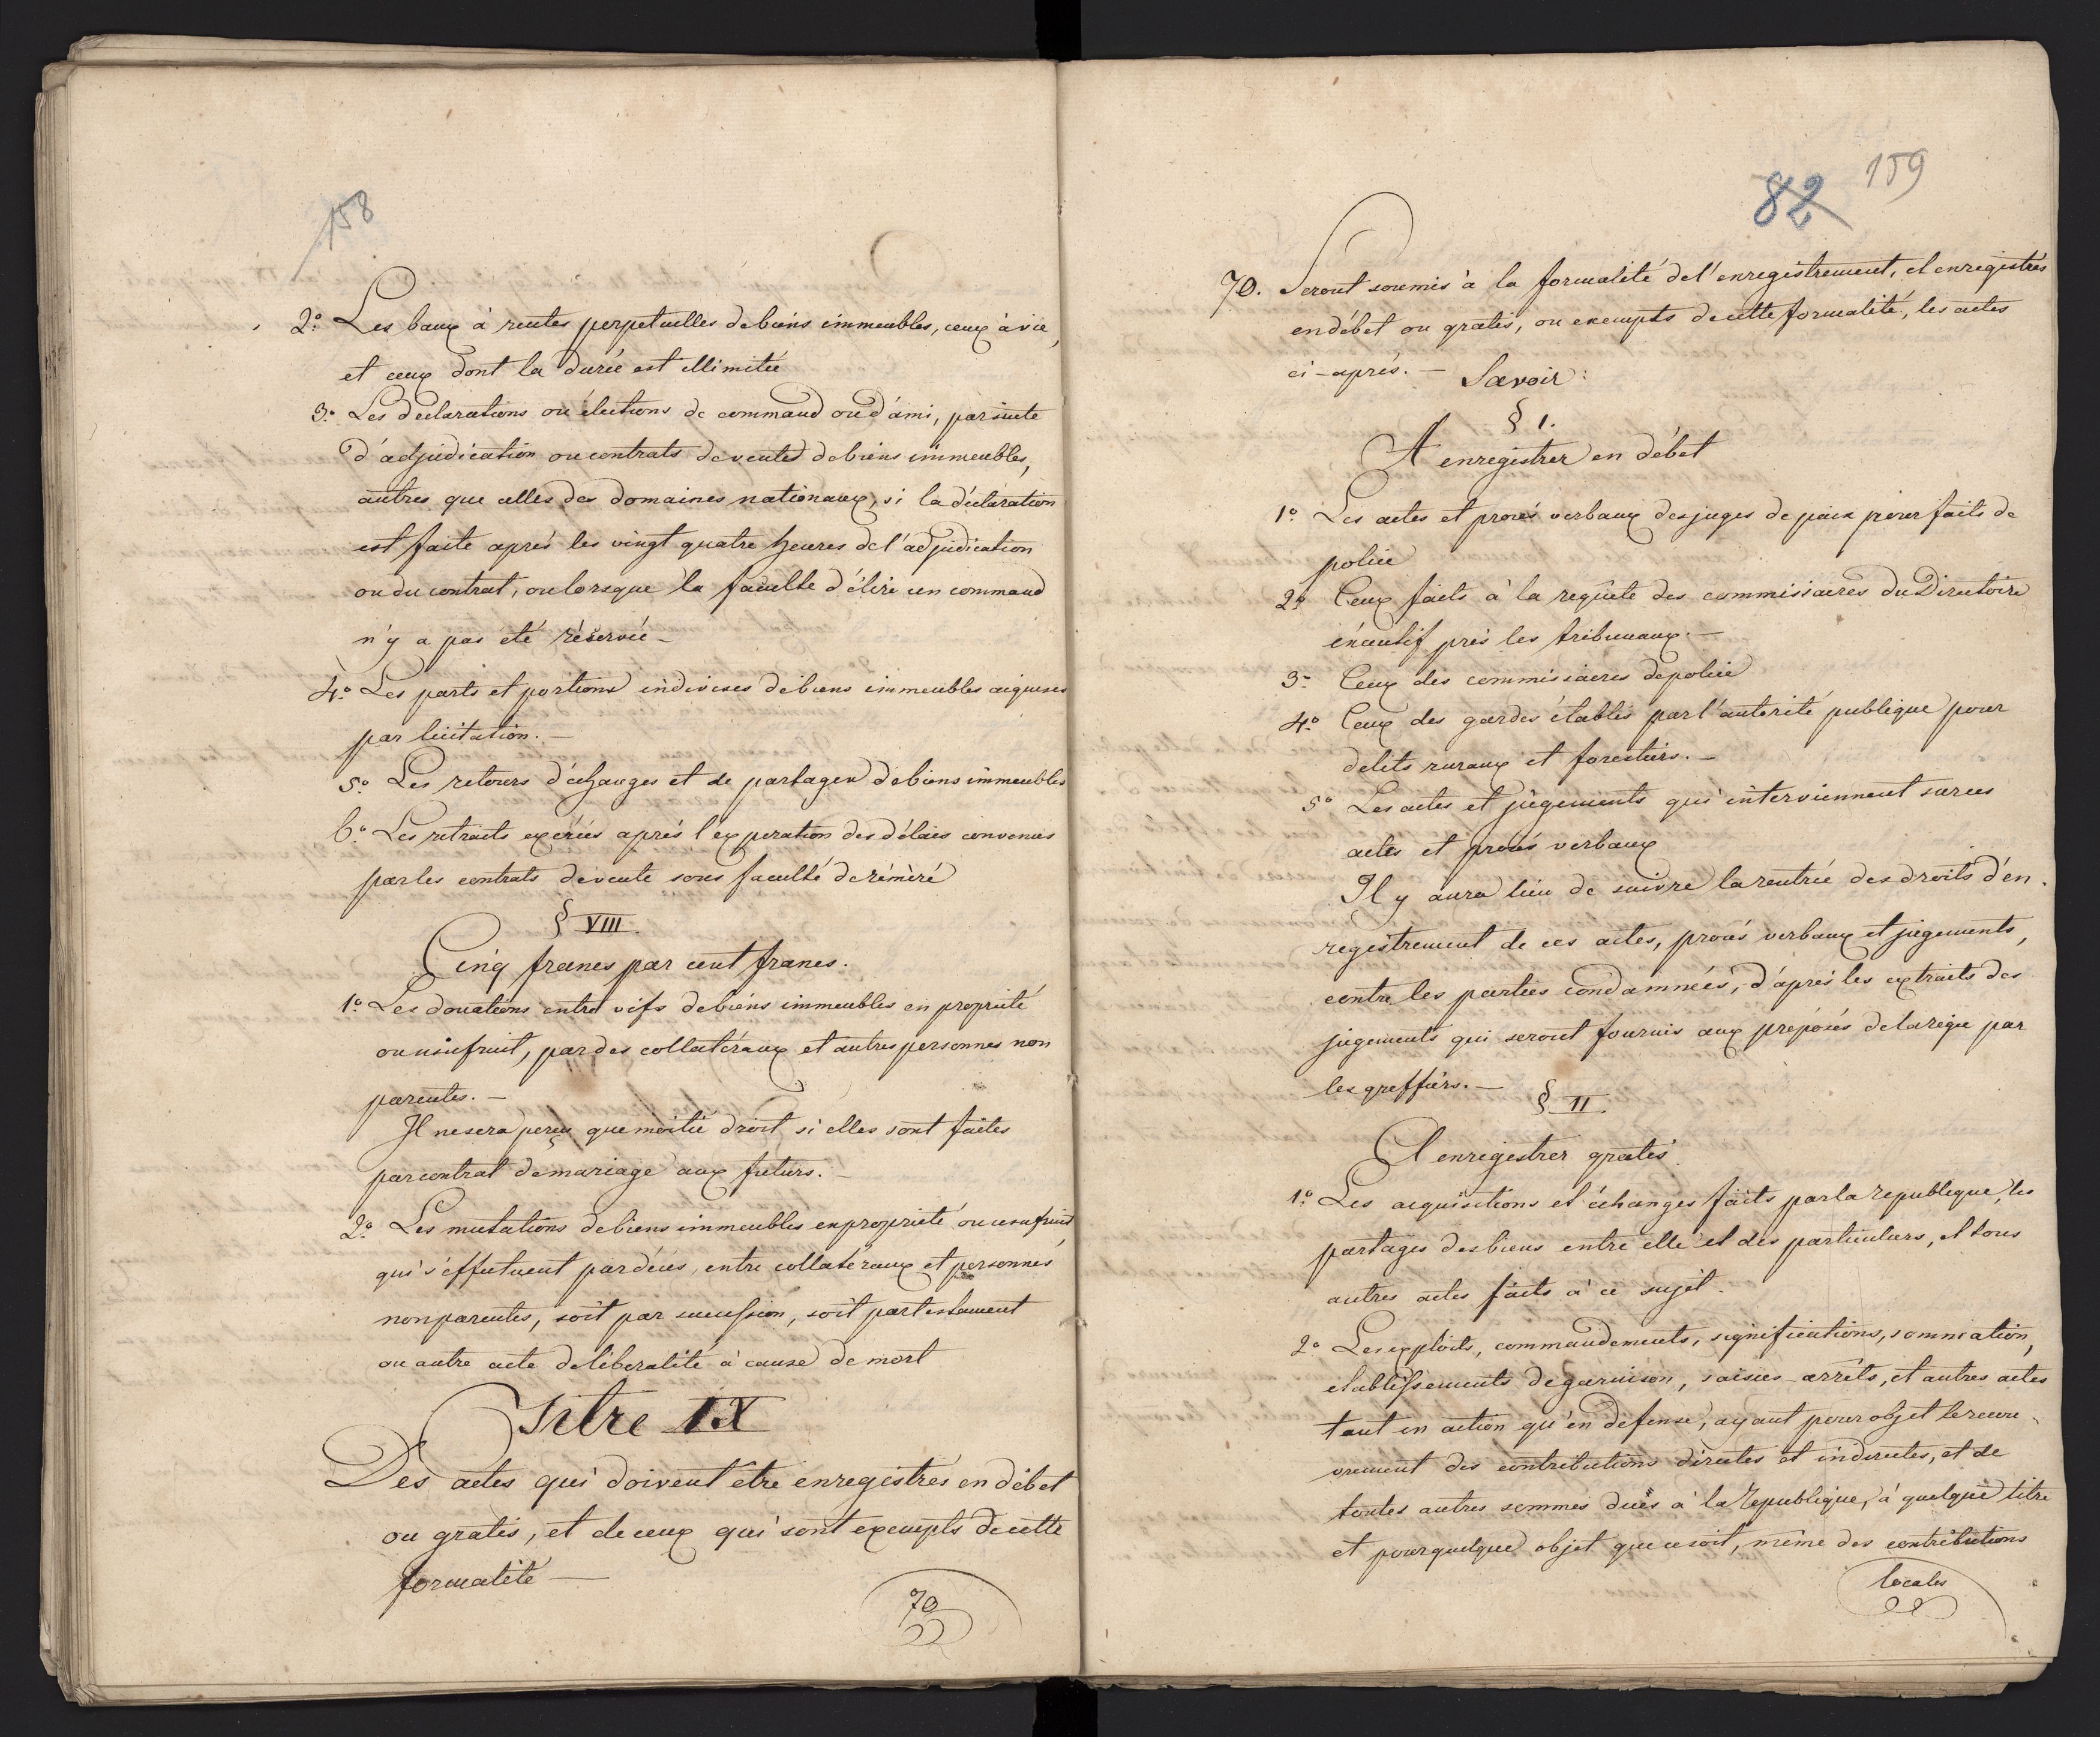 158
2º. Les baux à rentes perpetuelles de biens immeubles, ceux à vie,
et ceux dont la durée est illimitée
3º. Les declarations ou élections de command ou d'ami, par suite
d'adjudication ou contrats de ventes de biens immeubles,
autres que celles des domaines nationaux, si la déclaration
est faite après les vingt quatre heures de l'adjudication
ou du contrat, ou lorsque la faculté d'élire un command
n'y a pas été réservée -
4º. Les parts et portions indivises de biens immeubles aiquises
par licitation. -
5º. Les retours d'échanges et de partages de biens immeubles
6º. Les retraits exercés après l'expiration des délais convenus
par les contrats de vente sous faculté de réméré
§ VIII.
Cinq francs par cent francs.
1º. Les donations entre vifs de biens immeubles en propriété
ou usufruit, par des collatéraux et autres personnes non
parentes. -
Il ne sera perçu que moitié droit si elles sont faites
par contrat de mariage aux futurs. -
2º. Les mutations de biens immeubles en propriété ou usufruit,
qui s'effectuent par décès, entre collatéraux et personnes
non parentes, soit par succession, soit par testament
ou autre acte de libéralité à cause de mort
Titre IX
Des actes qui doivent être enregistrés en débet
ou gratis, et de ceux qui sont exempts de cette
formalité —
70
82 159
70. Seront soumis à la formalité de l'enregistrement, et enregistrés
en débet ou gratis, ou exempts de cette formalité, les actes
ci-après. — Savoir:
§ 1.
A enregistrer en débet
1º. Les actes et procès verbaux des juges de paix pour faits de
police
2º. Ceux faits à la requête des commissaires du Directoire
éxecutif près les tribunaux. -
3º. Ceux des commissaires de police
4º. Ceux des gardes établis par l'autorité publique pour
delits ruraux et forestiers. -
5º. Les actes et jugements qui interviennent sur ces
actes et procès verbaux
Il y aura lieu de suivre la rentrée des droits d'en-
registrement de ces actes, procès verbaux et jugements,
contre les parties condamnées, d'après les extraits des
jugements qui seront fournis aux préposés de la régie par
les greffiers. —
§ II.
A enregistrer gratis
1º. Les acquisitions et échanges faits par la republique, les
partages des biens entre elle et des particuliers, et tous
autres actes faits à ce sujet.
2º. Les exploits, commandements, significations, sommation,
etablissements de garnison, saisies-arrêts, et autres actes
tant en action qu'en defense, ayant pour objet le recou-
vrement des contributions directes et indirectes, et de
toutes autres sommes dues à la Republique, à quelque titre
et pour quelque objet que ce soit, même des contributions
locales